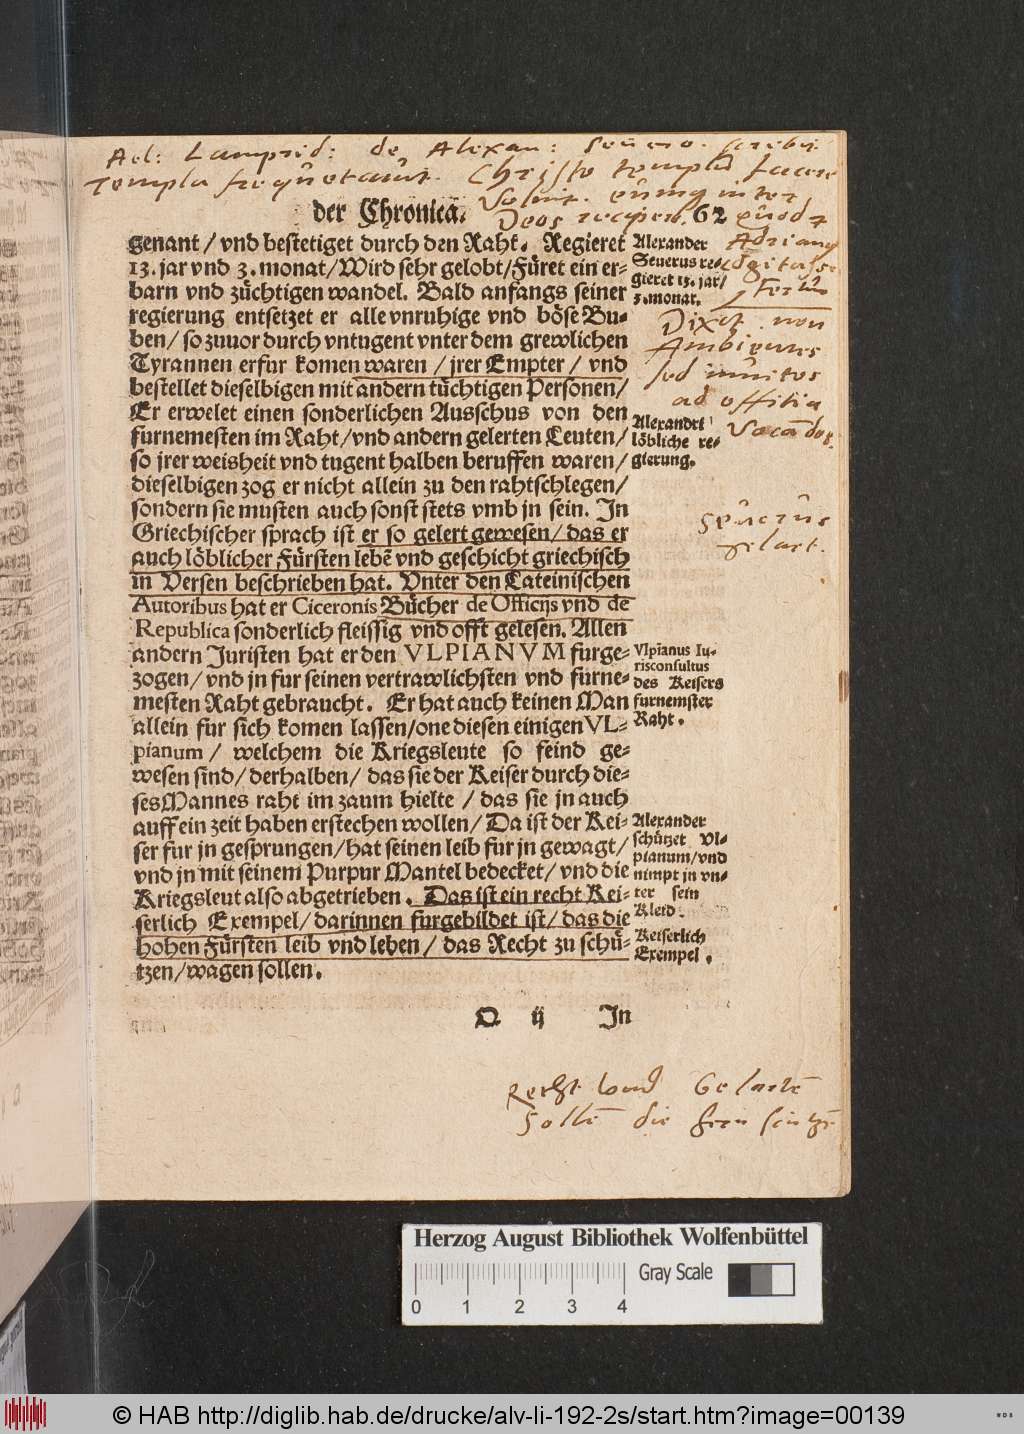 Ael: Lamprid: de Alexan: Seuero. scribit
Templa frequetauit. Christo templũ facere
Voluit. eumq inter
Deos recipere. quod
Adrianus
Dixit non
Ambientes
sed inuitos
ad offitia
Vocãdos.
Seuerus
gelart.
der Chronica. 62
genant / vnd bestetiget durch den Raht. Regieret
13. jar vnd 3. monat/Wird sehr gelobt/Füret ein er⸗
barn vnd züchtigen wandel. Bald anfangs seiner
regierung entsetzet er alle vnruhige vnd böse Bu⸗
ben/ so zuuor durch vntugent vnter dem grewlichen
Tyrannen erfur komen waren / jrer Empter / vnd
bestellet dieselbigen mit andern tüchtigen Personen/
Er erwelet einen sonderlichen Ausschus von den
furnemesten im Raht/vnd andern gelerten Leuten/
so jrer weisheit vnd tugent halben beruffen waren/
dieselbigen zog er nicht allein zu den rahtschlegen/
sondern sie musten auch sonst stets vmb jn sein. In
Griechischer sprach ist er so gelert gewesen/das er
auch löblicher Fürsten lebẽ vnd geschicht griechisch
in Versen beschrieben hat. Vnter den Lateinischen
Autoribus hat er Ciceronis Bücher de Officijs vnd de
Republica sonderlich fleissig vnd offt gelesen. Allen
andern Juristen hat er den VLPIANVM furge⸗
zogen/ vnd jn fur seinen vertrawlichsten vnd furne⸗
mesten Raht gebraucht. Er hat auch keinen Man
allein fur sich komen lassen/one diesen einigen VL⸗
pianum / welchem die Kriegsleute so feind ge⸗
wesen sind/ derhalben/ das sie der Keiser durch die⸗
ses Mannes raht im zaum hielte / das sie jn auch
auff ein zeit haben erstechen wollen/ Da ist der Kei⸗
ser fur jn gesprungen/hat seinen leib fur jn gewagt/
vnd jn mit seinem Purpur Mantel bedecket/ vnd die
Kriegsleut also abgetrieben. Das ist ein recht Kei⸗
serlich Exempel/ darinnen furgebildet ist/ das die
hohen Fürsten leib vnd leben/ das Recht zu schü⸗
tzen/wagen sollen.
Alexander
Seuerus re⸗
gieret 13. jar/
3. monat.
Alexandri
löbliche re⸗
gierung.
Vlpianus Iu-
risconsultus
des Keisers
furnemster
Raht.
Alexander
schützet Vl⸗
pianum/vnd
nimpt jn vn⸗
ter sein
Kleid.
Keiserlich
Exempel.
Q ij In
Recht vnd Gelartẽ
Sollẽ die hern schutzẽ
Herzog August Bibliothek Wolfenbüttel
0 1 2 3 4
Gray Scale
© HAB http://diglib.hab.de/drucke/alv-li-192-2s/start.htm?image=00139